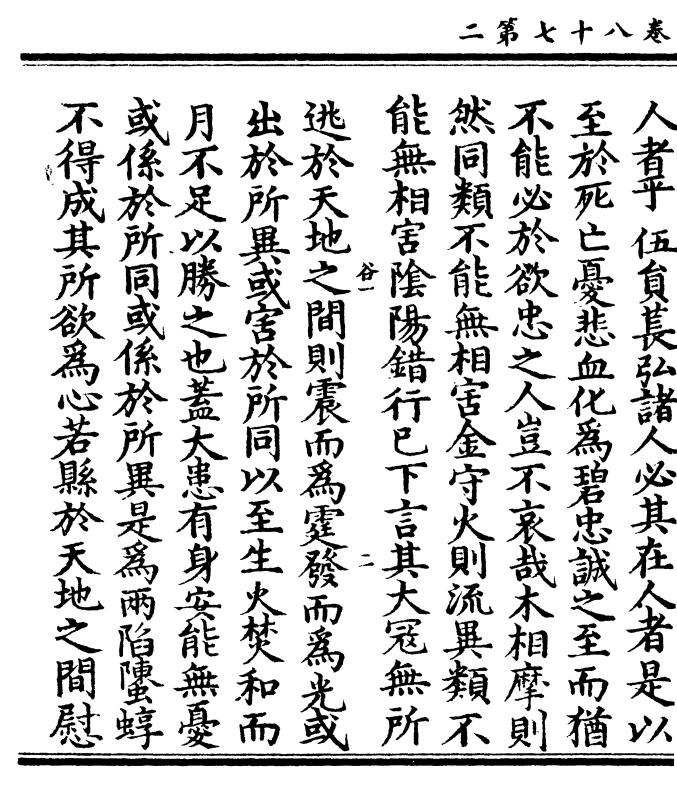 卷八十七第二
人者乎伍員萇弘諸人必其在人者是以
至於死亡憂悲血化為碧忠誠之至而猶
不能必於欲忠之人豈不哀哉木相摩則
然同類不能無相害金守火則流異類不
能無相害陰陽錯行已下言其大冦無所
谷一
二
逃於天地之間則震而為霆發而為光或
出於所異或害於所同以至生火焚和而
月不足以勝之也蓋大患有身安能無憂
或係於所同或係於所異是為兩陷䘆蜳
不得成其所欲為心若縣於天地之間慰